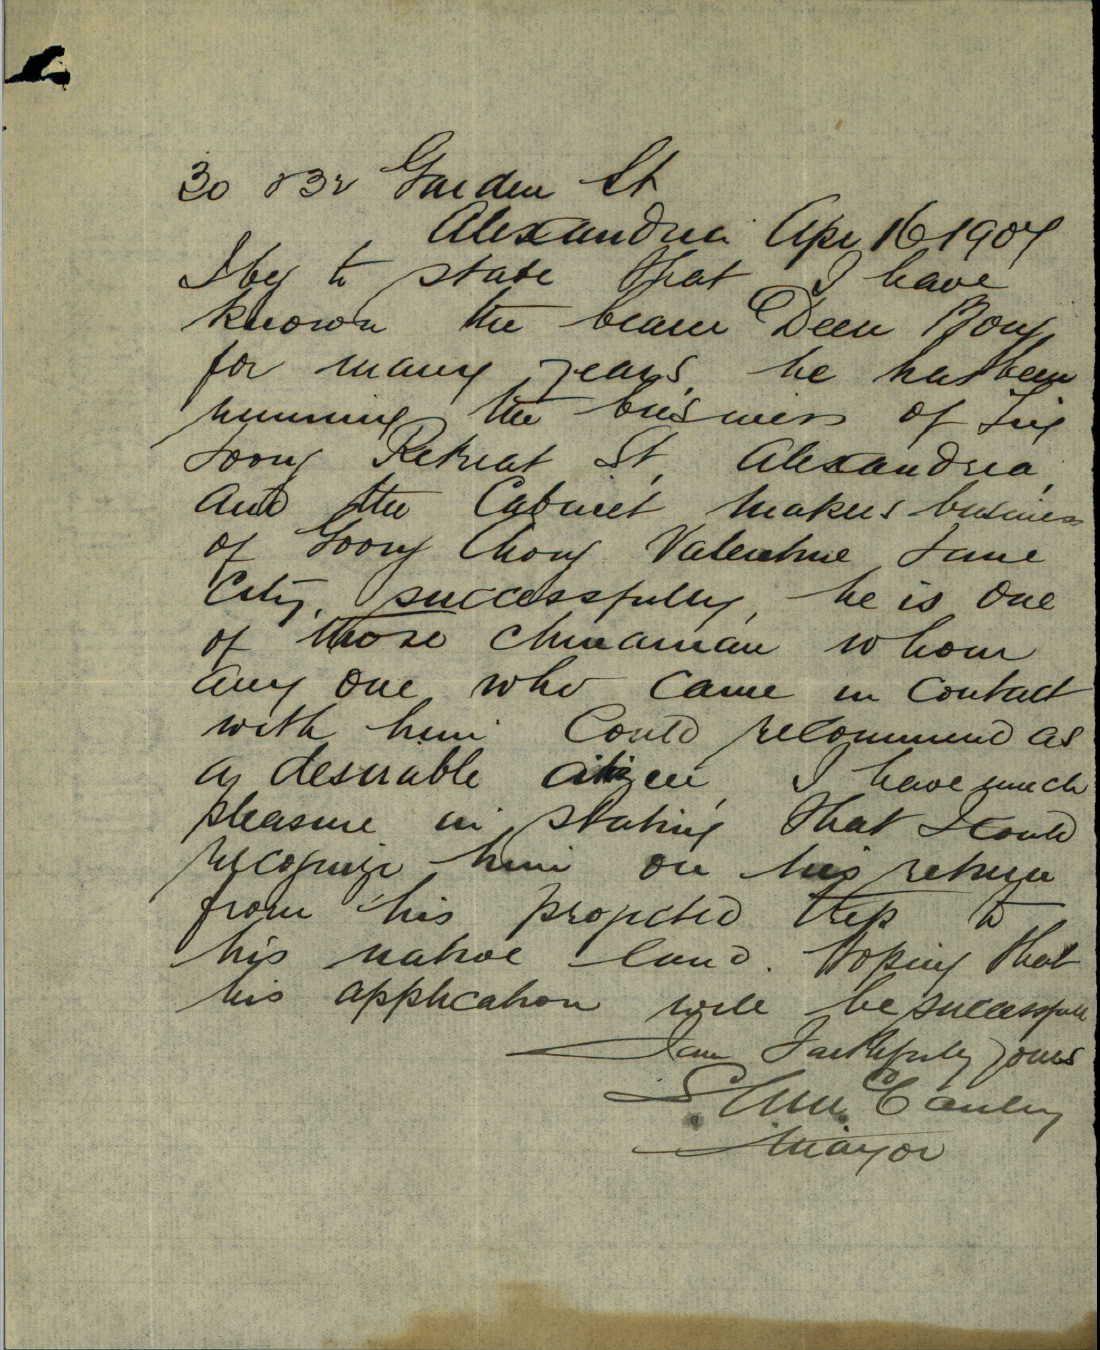 30 & 32 Garden St
Alexandria Apr 16 1907
I beg to state that I have
known the bearer Deen Bong
for many years, he has been
running the business of
Loong Retreat St, Alexandria,
and the Cabinet makers business
of Goong Chong Valentine Lane
City, successfully, he is one
of those chinaman whom
any one who came in contact
with him could recommend as
a desirable citizen, I have much
pleasure in stating that I could
recognize him on his return
from his projected trip to
his native land. Hoping that
his application will be successful
I am Faithfully yours
Cauley
Mayor